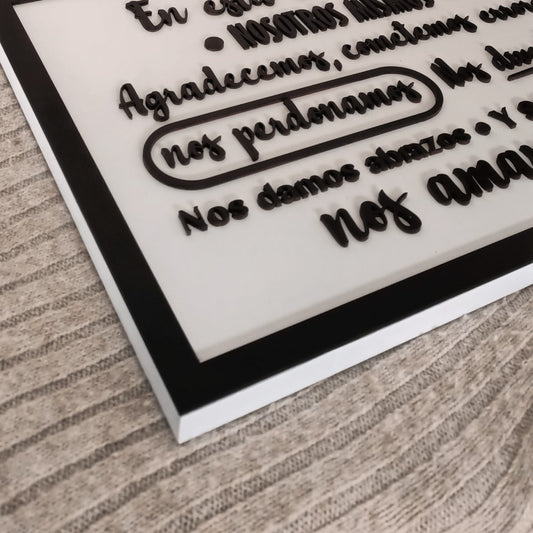 En
• NOSOTROS MISMOS
Agradecemos, cometemos
nos perdonamos Nos
Nos damos abrazos • Y
nos